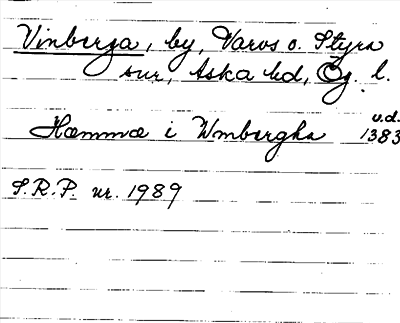 Vinberga, by, Varvs o. Styra
snr, Aska hd, Ög. l.
Hæmmæ i Wmbergha u.d. 1383
S.R.P. nr. 1989